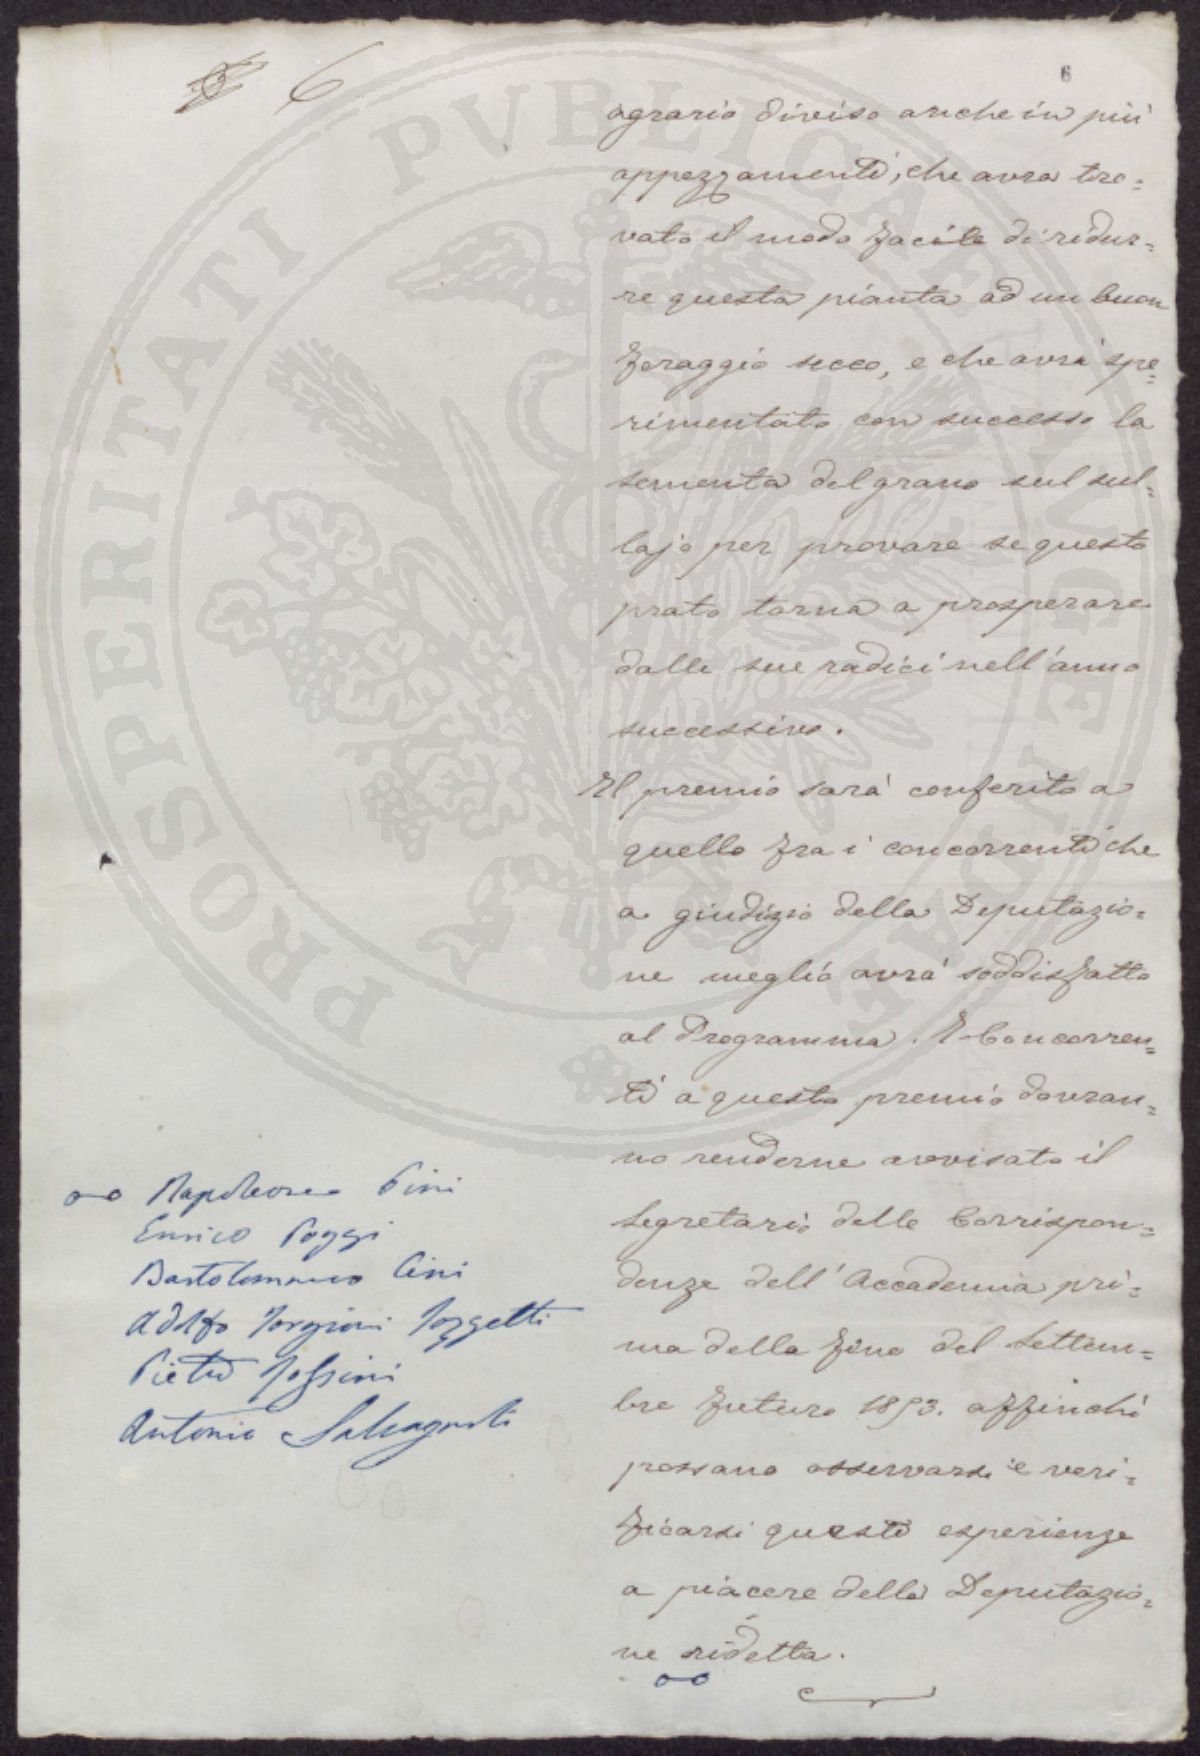 6
6
agrario diviso anche in più
appezzamenti, che avra tro=
vato il modo facile di ridur=
re questa pianta ad un buon
foraggio secco, e che avrà spe=
rimentato con successo la
sementa del grano sul sul=
lajo per provare se questo
prato torna a prosperare
dalle sue radici nell'anno
successivo.
Il premio sarà conferito a
quello fra i concorrenti che
a giudizio della Deputazio=
ne meglio avrà soddisfatto
al Programma. I Concorren=
ti a questo premio dovran=
no renderne avvisato il
Segretario delle Corrispon=
denze dell'Accademia pri=
ma della fine del Settem=
bre futuro 1853. affinchè
possano osservarsi e veri=
ficarsi queste esperienze
a piacere della Deputazio=
ne ridetta.
Napoleone Pini
Enrico Poggi
Bartolommeo Cini
Adolfo Targioni Tozzetti
Pietro
Antonio Salvagnoli
PROSPERITATI PVBLICAE AVGENDAE